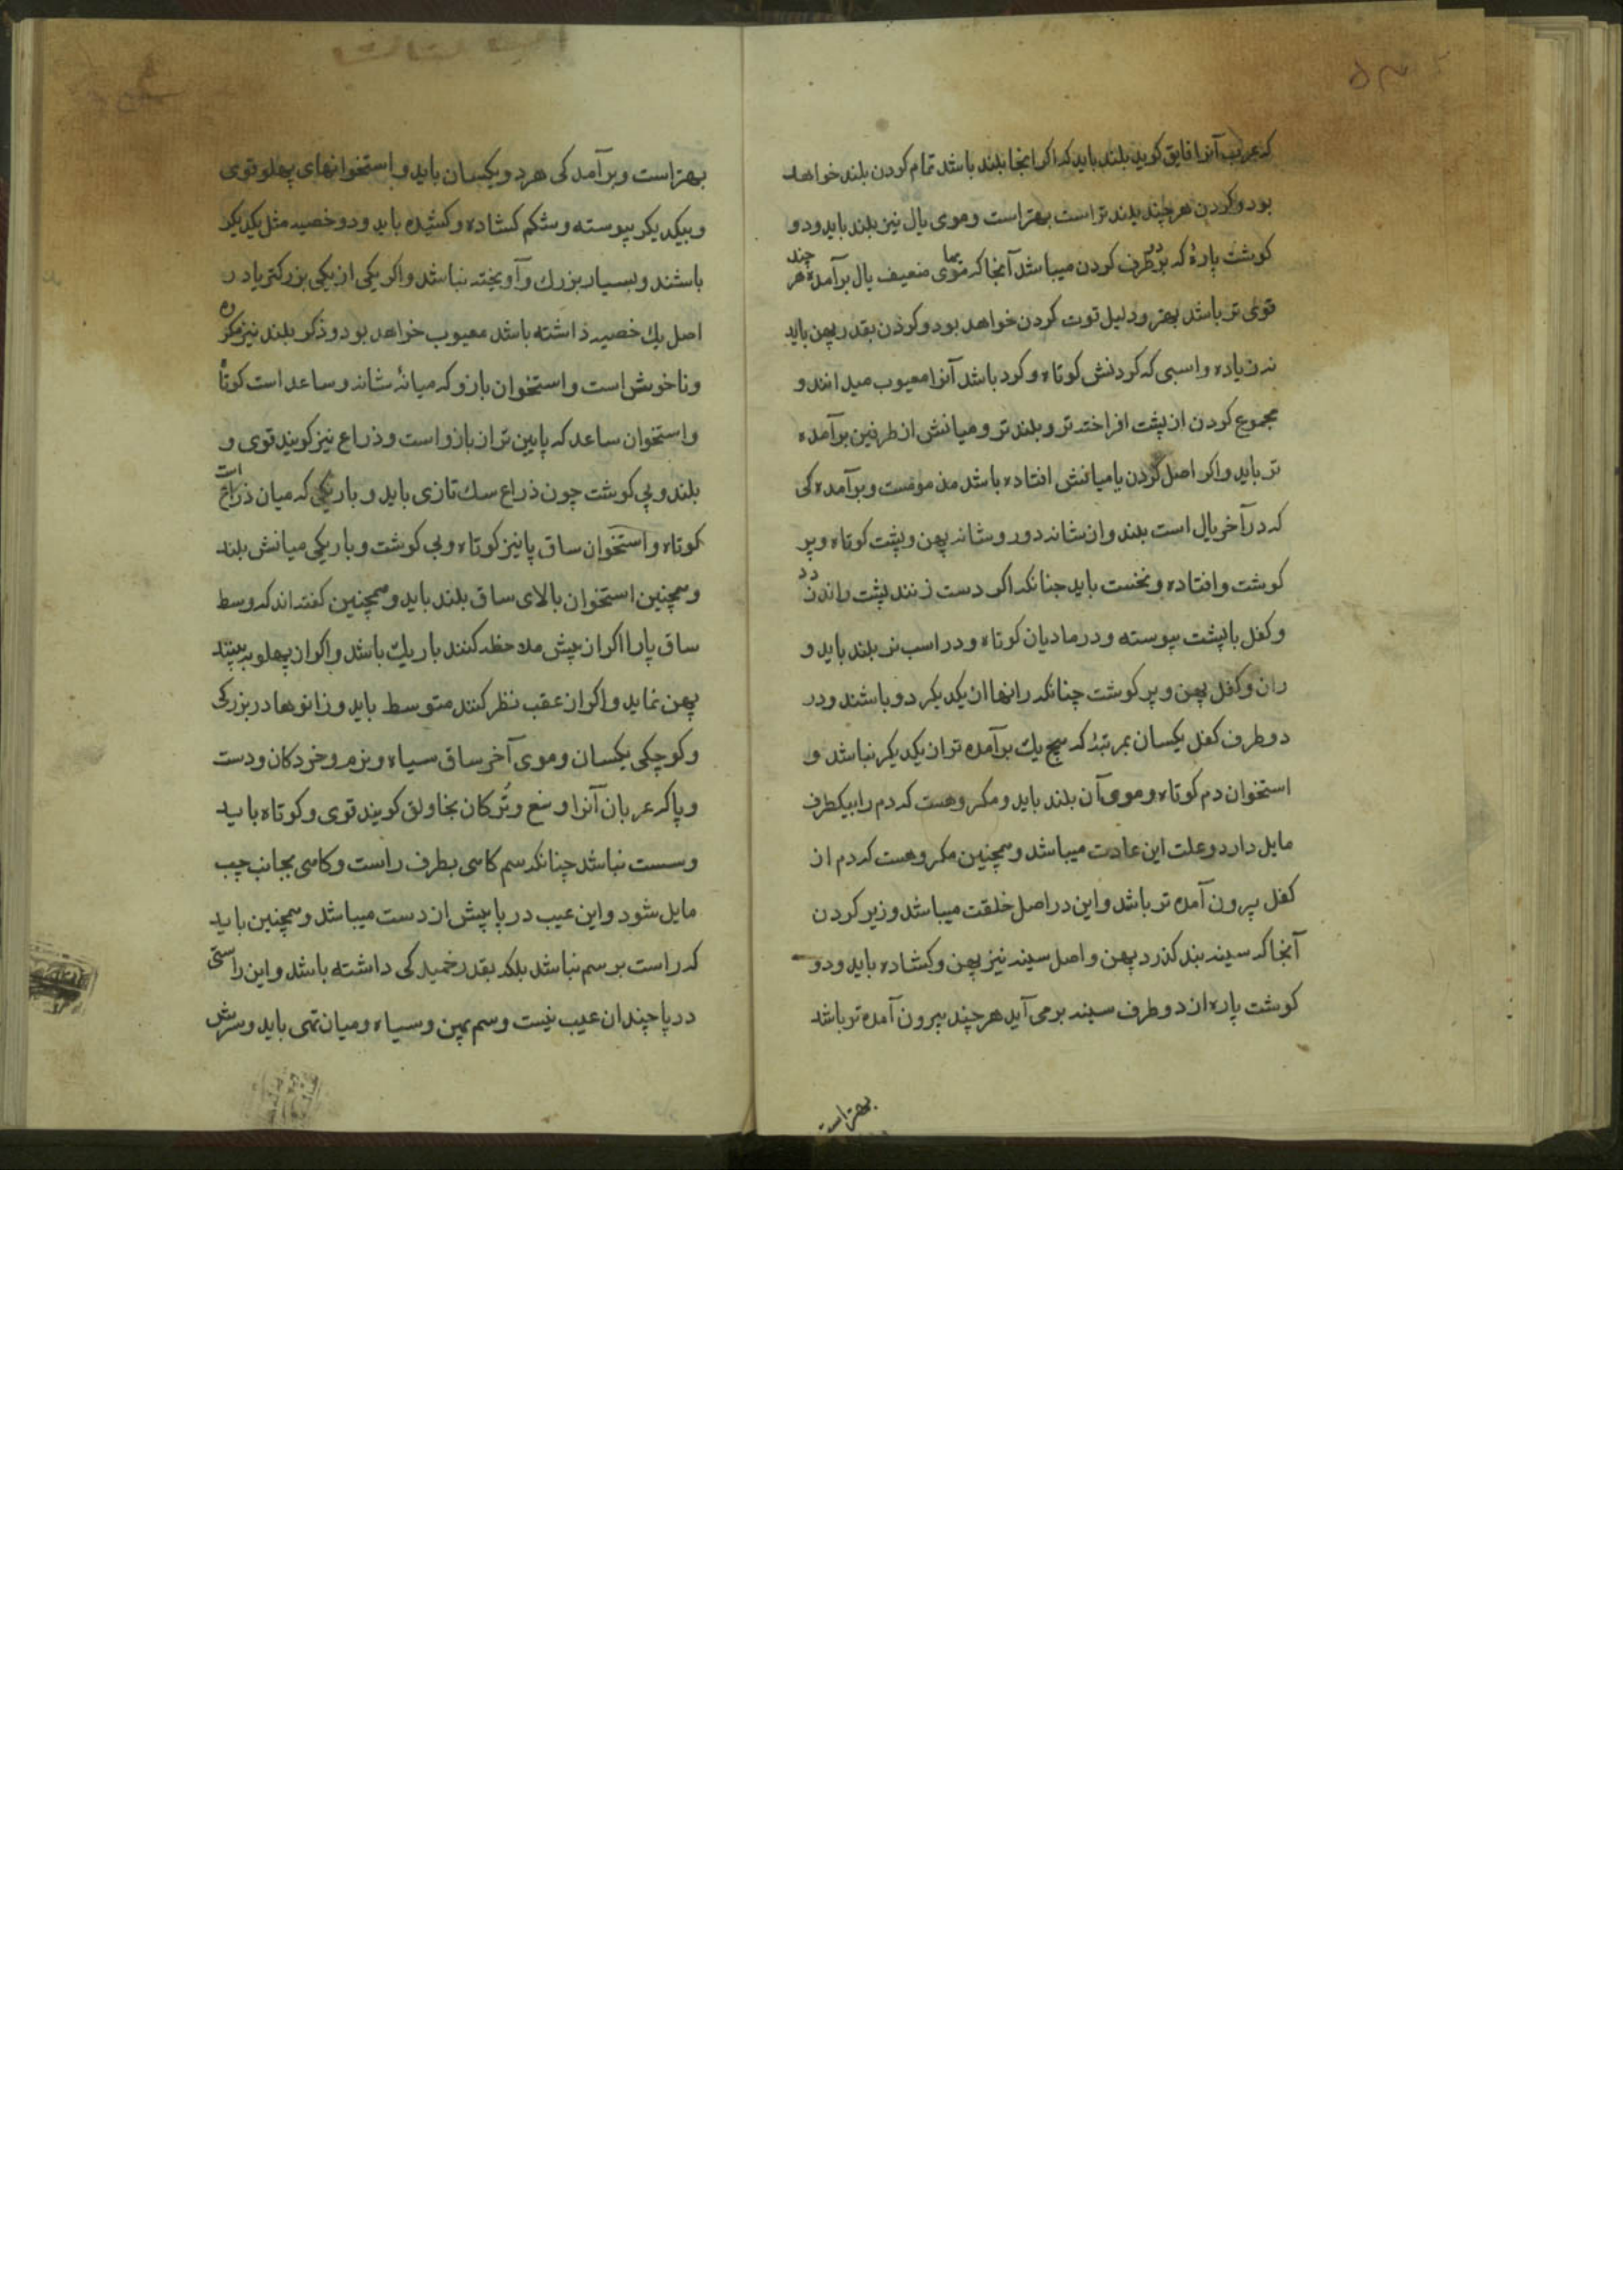 که عرب آنرا فایق کویند بلند باید که اکر انجا بلند باشد تمام کردن بلند خواهد
بود و کردن هر چند بلند تر است بهتر است و موی یال نیز بلند باید و دو
کوشت پارهٔ که بر دو طرف کردن میباشد آنجا که موی ضعیف یال برآمده هر چند
قوی تر باشد بهتر و دلیل قوت کردن خواهد بود و کردن بقدر پهن باید
نه زیاده و اسبی که کردنش کوتاه و کرد باشد آنرا معیوب میدانند و
مجموع کردن از پشت افراخته تر و بلند تر و میانش از طرفین برآمده
تر باید و اکر اصل کردن یا میانش افتاده باشد مذمومست و برآمده کی
که در آخر یال است بلند و از شانه دور و شانه پهن و پشت کوتاه و پر
کوشت و افتاده و نخست باید چنانکه اکر دست زنند پشت را ندزدد
و کفل با پشت پیوسته و در مادیان کوتاه و در اسب نر بلند باید و
ران و کفل پهن و پر کوشت چنانکه رانها از یکدیکر دو باشند و در
دو طرف کفل یکسان بمرتبهٔ که هیچ یك برآمده تر از یکدیکر نباشد و
استخوان دم کوتاه و موی آن بلند باید و مکروهست که دم را بیکطرف
مایل دارد و علت این عادت میباشد و همچنین مکروهست که دم از
کفل بیرون آمده تر باشد و این در اصل خلقت میباشد و زیر کردن
آنجا که سینه بند کذرد پهن و اصل سینه نیز پهن و کشاده باید و دو
کوشت پاره از دو طرف سینه برمی آید هر چند بیرون آمده تر باشد
بهتر است
بهتر است و برآمد کی هر دو یکسان باید و استخوانهای پهلو قوی
و بیکدیکر پیوسته و شکم کشاده و کشیده باید و دو خصیه مثل یکدیکر
باشند و بسیار بزرك و آویخته نباشد و اکر یکی از یکی بزرکتر یا در
اصل یك خصیه داشته باشد معیوب خواهد بود و ذکر بلند نیز مکروه
و ناخوش است و استخوان بازو که میانهٔ شانه و ساعد است کوتاه
و استخوان ساعد که پایین تر از بازو است و ذراع نیز کویند قوی و
بلند و بی کوشت چون ذراع سك تازی باید و باریکی که میان ذراع است
کوتاه و استخوان ساق پا نیز کوتاه و بی کوشت و باریکی میانش بلند
و همچنین استخوان بالای ساق بلند باید و همچنین کفته اند که وسط
ساق پا را اکر از پیش ملاحظه کنند باریك باشد و اکر از پهلو به بینند
پهن نماید و اکر از عقب نظر کنند متوسط باید و زانوها در بزرکی
و کوچکی یکسان و موی آخر ساق سیاه و نرم و خردکان و دست
و پا که عربان آنرا وسغ و ترکان بخاولق کویند قوی و کوتاه باید
و سست نباشد چنانکه سم کاهی بطرف راست و کاهی بجانب چپ
مایل شود و این عیب در پا پیش از دست میباشد و همچنین باید
که راست بر سم نباشد بلکه بقدر خمید کی داشته باشد و این راستی
در پا چندان عیب نیست و سم پهن و سیاه و میان تهی باید و سرش